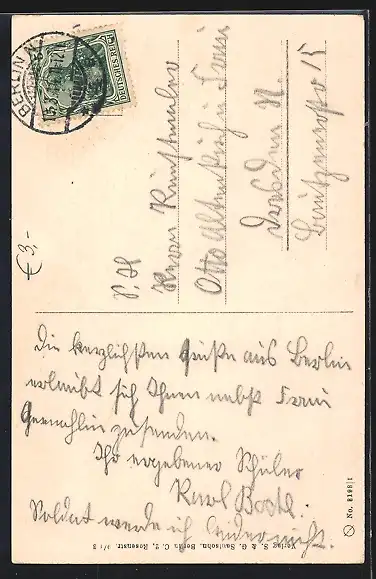 BERLIN
DEUTSCHES REICH
S. H.
Herrn Kunstmaler
Otto Altenkirch u. Frau
Dresden N.
15
€ 3,-
Die herzlichsten Grüße aus Berlin
erlaubt sich Ihnen nebst Frau
Gemahlin zu senden.
Ihr ergebener Schüler
Karl
Soldat werde ich leider nicht.
Verlag S. & G. Saulsohn, Berlin C. 2, Rosenstr.
No. 8198|1